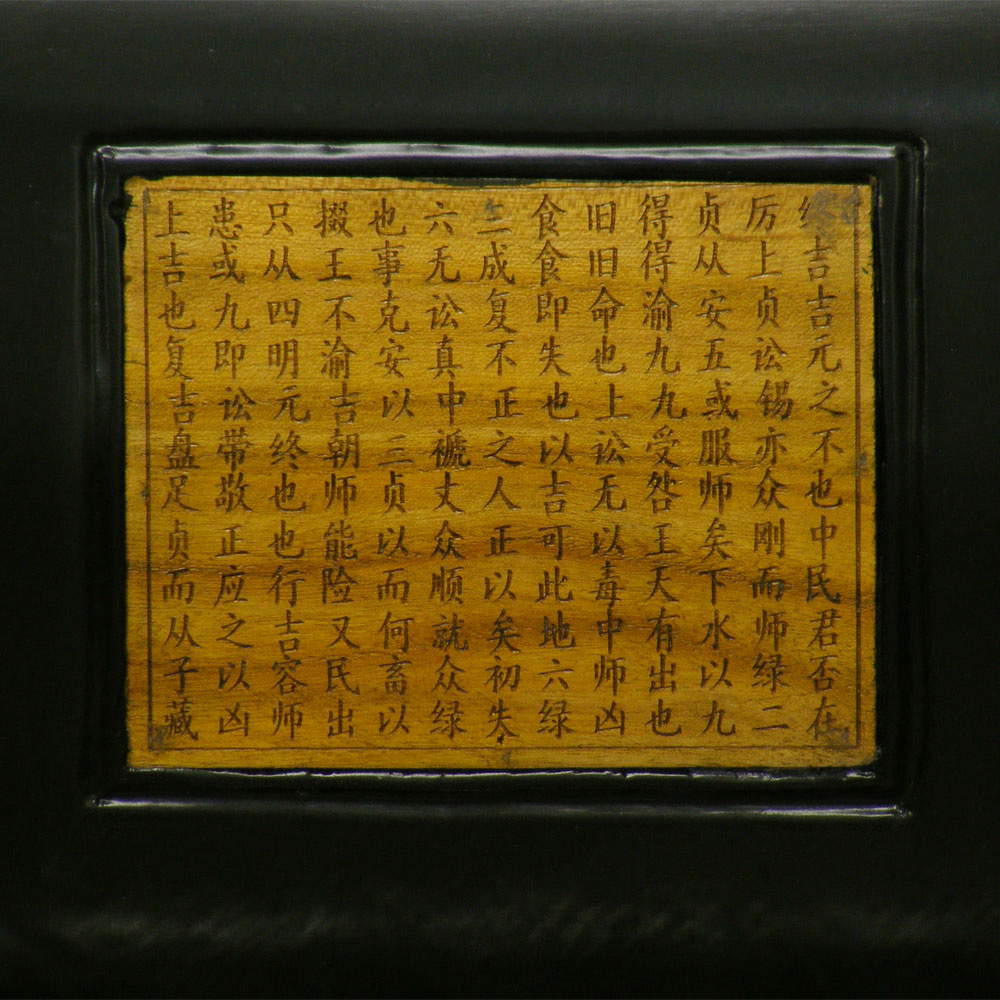 吉吉元之不也中民君否在
厉上贞讼锡亦众刚而师绿二
贞从安五或服师矣下水以九
得得渝九九受咎王天有出也
旧旧命也上讼无以毒中师凶
食食即失也以吉可此地六绿
成复不正之人正以矣初失
六无讼真中褫丈众顺就众绿
也事克安以三贞以而何畜以
掇王不渝吉朝师能险又民出
只从四明元终也也行吉容师
患或九即讼带敬正应之以凶
上吉也复吉盘足贞而从子藏